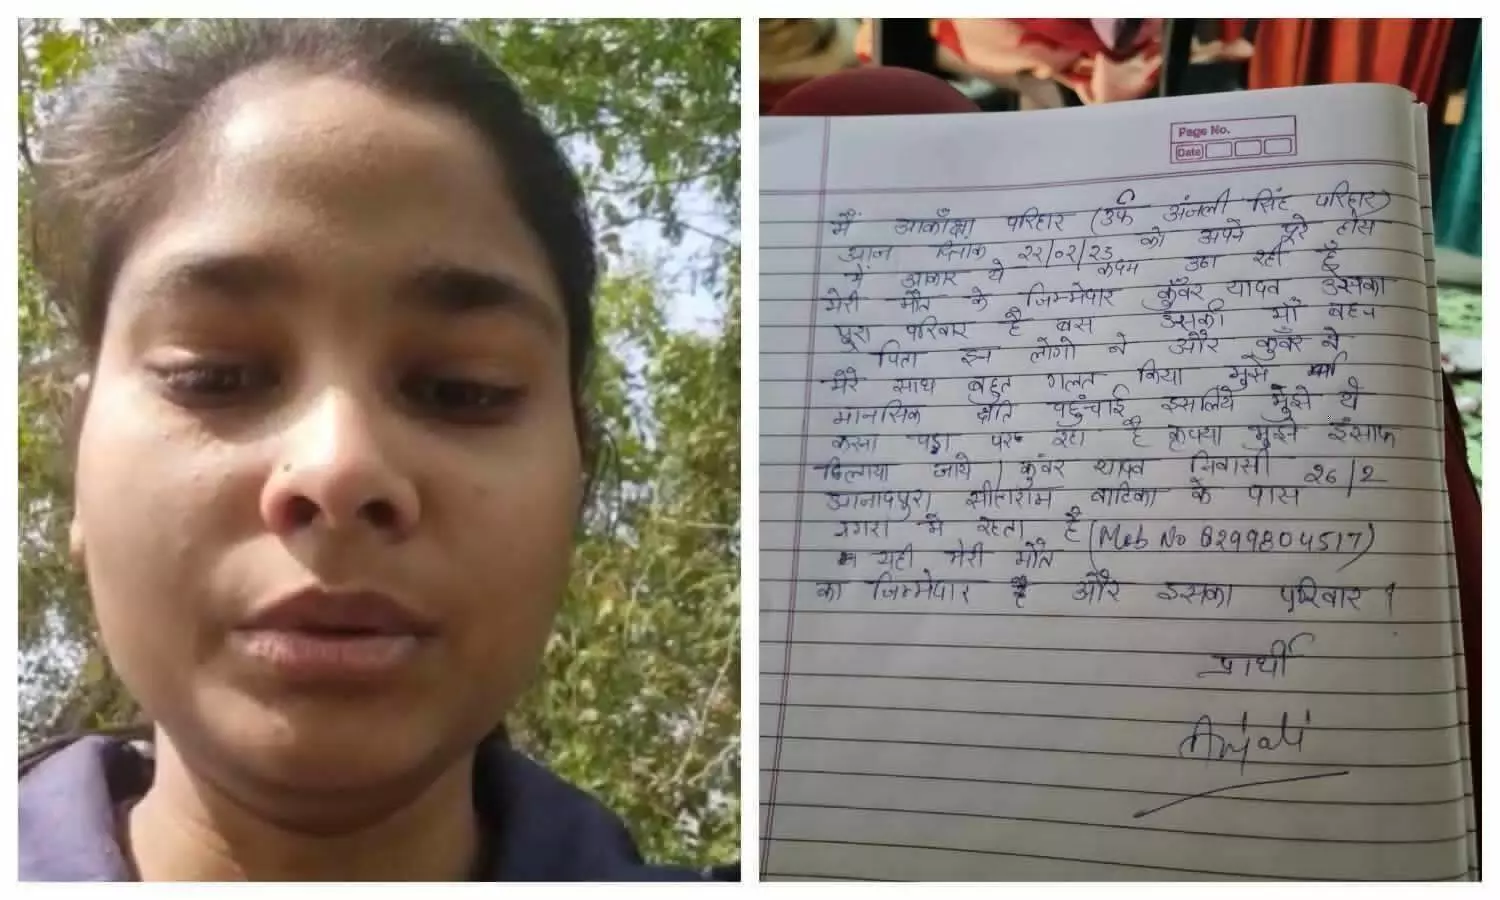 Page No.
Date
मैं आकाँक्षा परिहार (उर्फ अंजली सिंह परिहार)
आज दिनांक २२/०२/२३ को अपने पूरे होस
में आकार ये कदम उठा रही हूँ
मेरी मौत के जिम्मेदार कुँवर यादव उसका
पूरा परिवार है बस उसकी माँ बहन
पिता इन लोगो ने और कुँवर ने
मेरे साथ बहुत गलत किया मुझे
मानसिक क्षति पहुंचाई इसलिये मुझे ये
करना पड़ रहा है कृपया मुझे इंसाफ
दिलाया जाये। कुंवर यादव निवासी 26/2
सीताराम वाटिका के पास
में रहता है (Mob No 8299804517)
यही मेरी मौत
का जिम्मेदार है और इसका परिवार।
प्रार्थी
Anjali